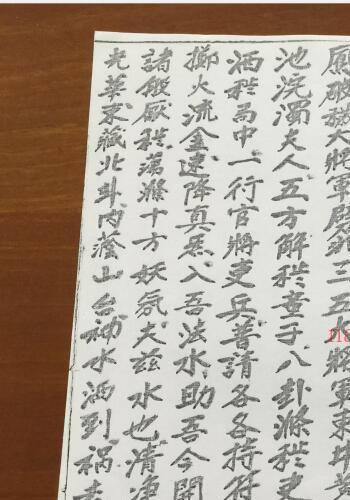 破穢大將軍 三五 將軍
池浣濁夫人五方解穢童子八卦滌穢吏
洒穢局中一行官將吏兵普請各各持符
擲火流金速降真炁入吾法水助吾今開
諸般厭穢蕩滌十方妖氛夫茲水也清淨
光華末藏北斗內蔭山台神水洒到禍